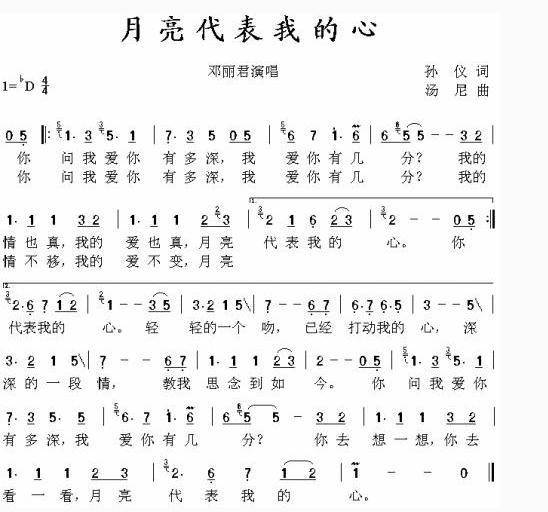 月亮代表我的心
邓丽君演唱
孙 仪 词
1=♭D 4/4
汤 尼 曲
0 5 ‖: 1· 3 5· 1 | 7· 3 5 0 5 | 6 7 1· 6 | 6 5 5 - - 3 2 |
你 问我爱你 有多深，我 爱你有几 分？ 我的
你 问我爱你 有多深，我 爱你有几 分？ 我的
1· 1 1 3 2 | 1· 1 1 2 3 | 2 1 6 2 3 | 2 - - 0 5 :‖
情也真，我的 爱也真，月亮 代表我的 心。 你
情不移，我的 爱不变，月亮
2· 6 7 1 2 | 1 - - 3 5 | 3· 2 1 5 | 7 - - 6 7 | 6· 7 6· 5 | 3 - - 5 |
代表我的 心。 轻 轻的一个 吻， 已经 打动我的 心， 深
3· 2 1 5 | 7 - - 6 7 | 1· 1 1 2 3 | 2 - - 0 5 | 1· 3 5· 1 |
深的一段 情， 教我 思念到如 今。 你 问我爱你
7· 3 5· 5 | 6· 7 1· 6 | 6 5 5 - 3 2 | 1· 1 1 3 2 |
有多深，我 爱你有几 分？ 你去 想一想，你去
1· 1 1 2 3 | 2· 6 7 1 2 | 1 - - 0 ‖
看一看，月亮 代表我的 心。